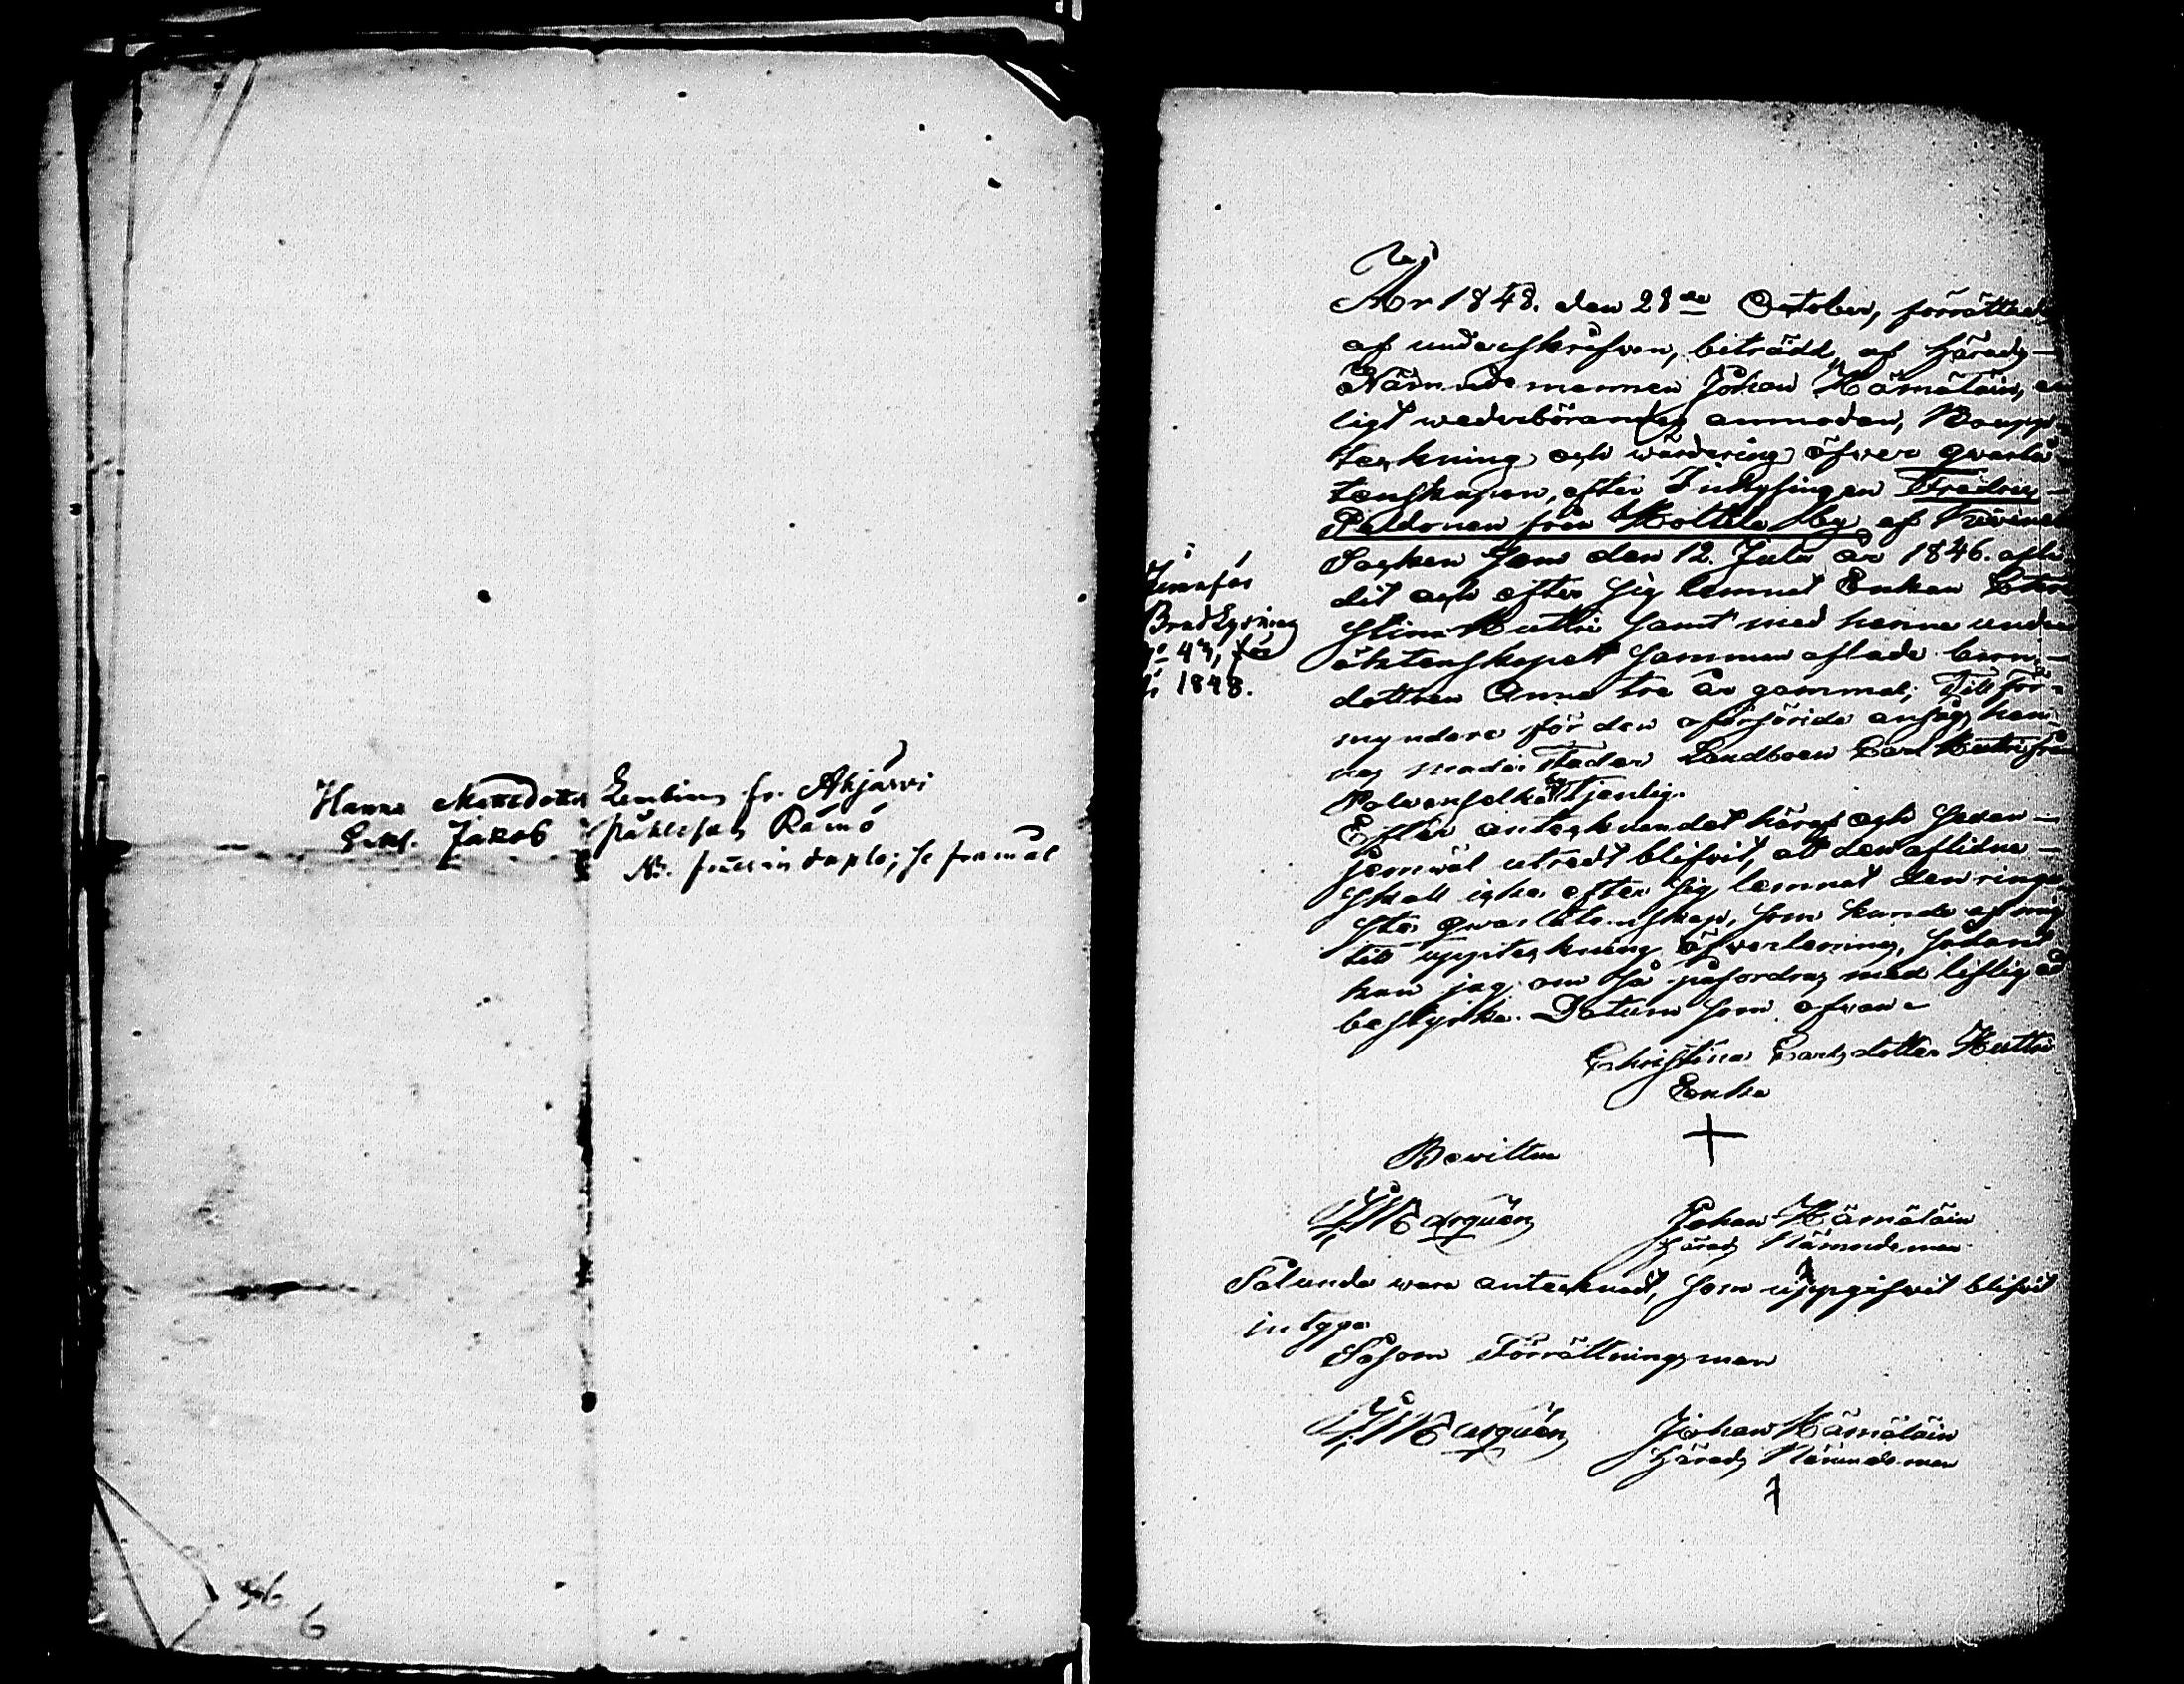 Hanna Mattsdotter Lembinen fr. Akjärvi
Enkl. Jakob Påhlsson Rämö
56
6
År 1848. den 28de October, förrättad
af underskrifven, biträdd, af Härads-
Nämndemannen Johan Hämäläin, en
ligt wederbörandes anmodan, Boupp-
teckning och wärdering öfwer qwarlå-
tenskapen, efter Inhysingen Fredric
Peldonen från Kottila by af
Socken som den 12. Julii år 1846. afli
dit och efter sig lemnat Enkan Chri
stina Huttri samt med henne under
äktenskapet samman aflade barn-
dottren Anna tre år gammal; Till för-
myndare för den oförsörjda ansågs hen-
nes moder Fader Landboen Carl Huttri från
Polwenselkä by tjenlig.
Efter antecknandet häraf och sedan-
jemwäl utredt blifvit, att den aflidne-
skall icke efter sig lemnat den ringa
ste qwarlåtenskap, som kunde af mig
till uppteckning öfwerlemnas, sådant
kan jag om så påfordras med liflig ed
bestyrka. Datum som ofwan
Christina Carlsdotter Huttri
Enka
Bewittna
Johan Hämäläin
Härads Nämndeman
Sålunda wara antecknadt, som uppgifwit blifvit
intyga
Såsom Förrättningsman
Johan Hämäläin
Härads Nämndeman
1848.